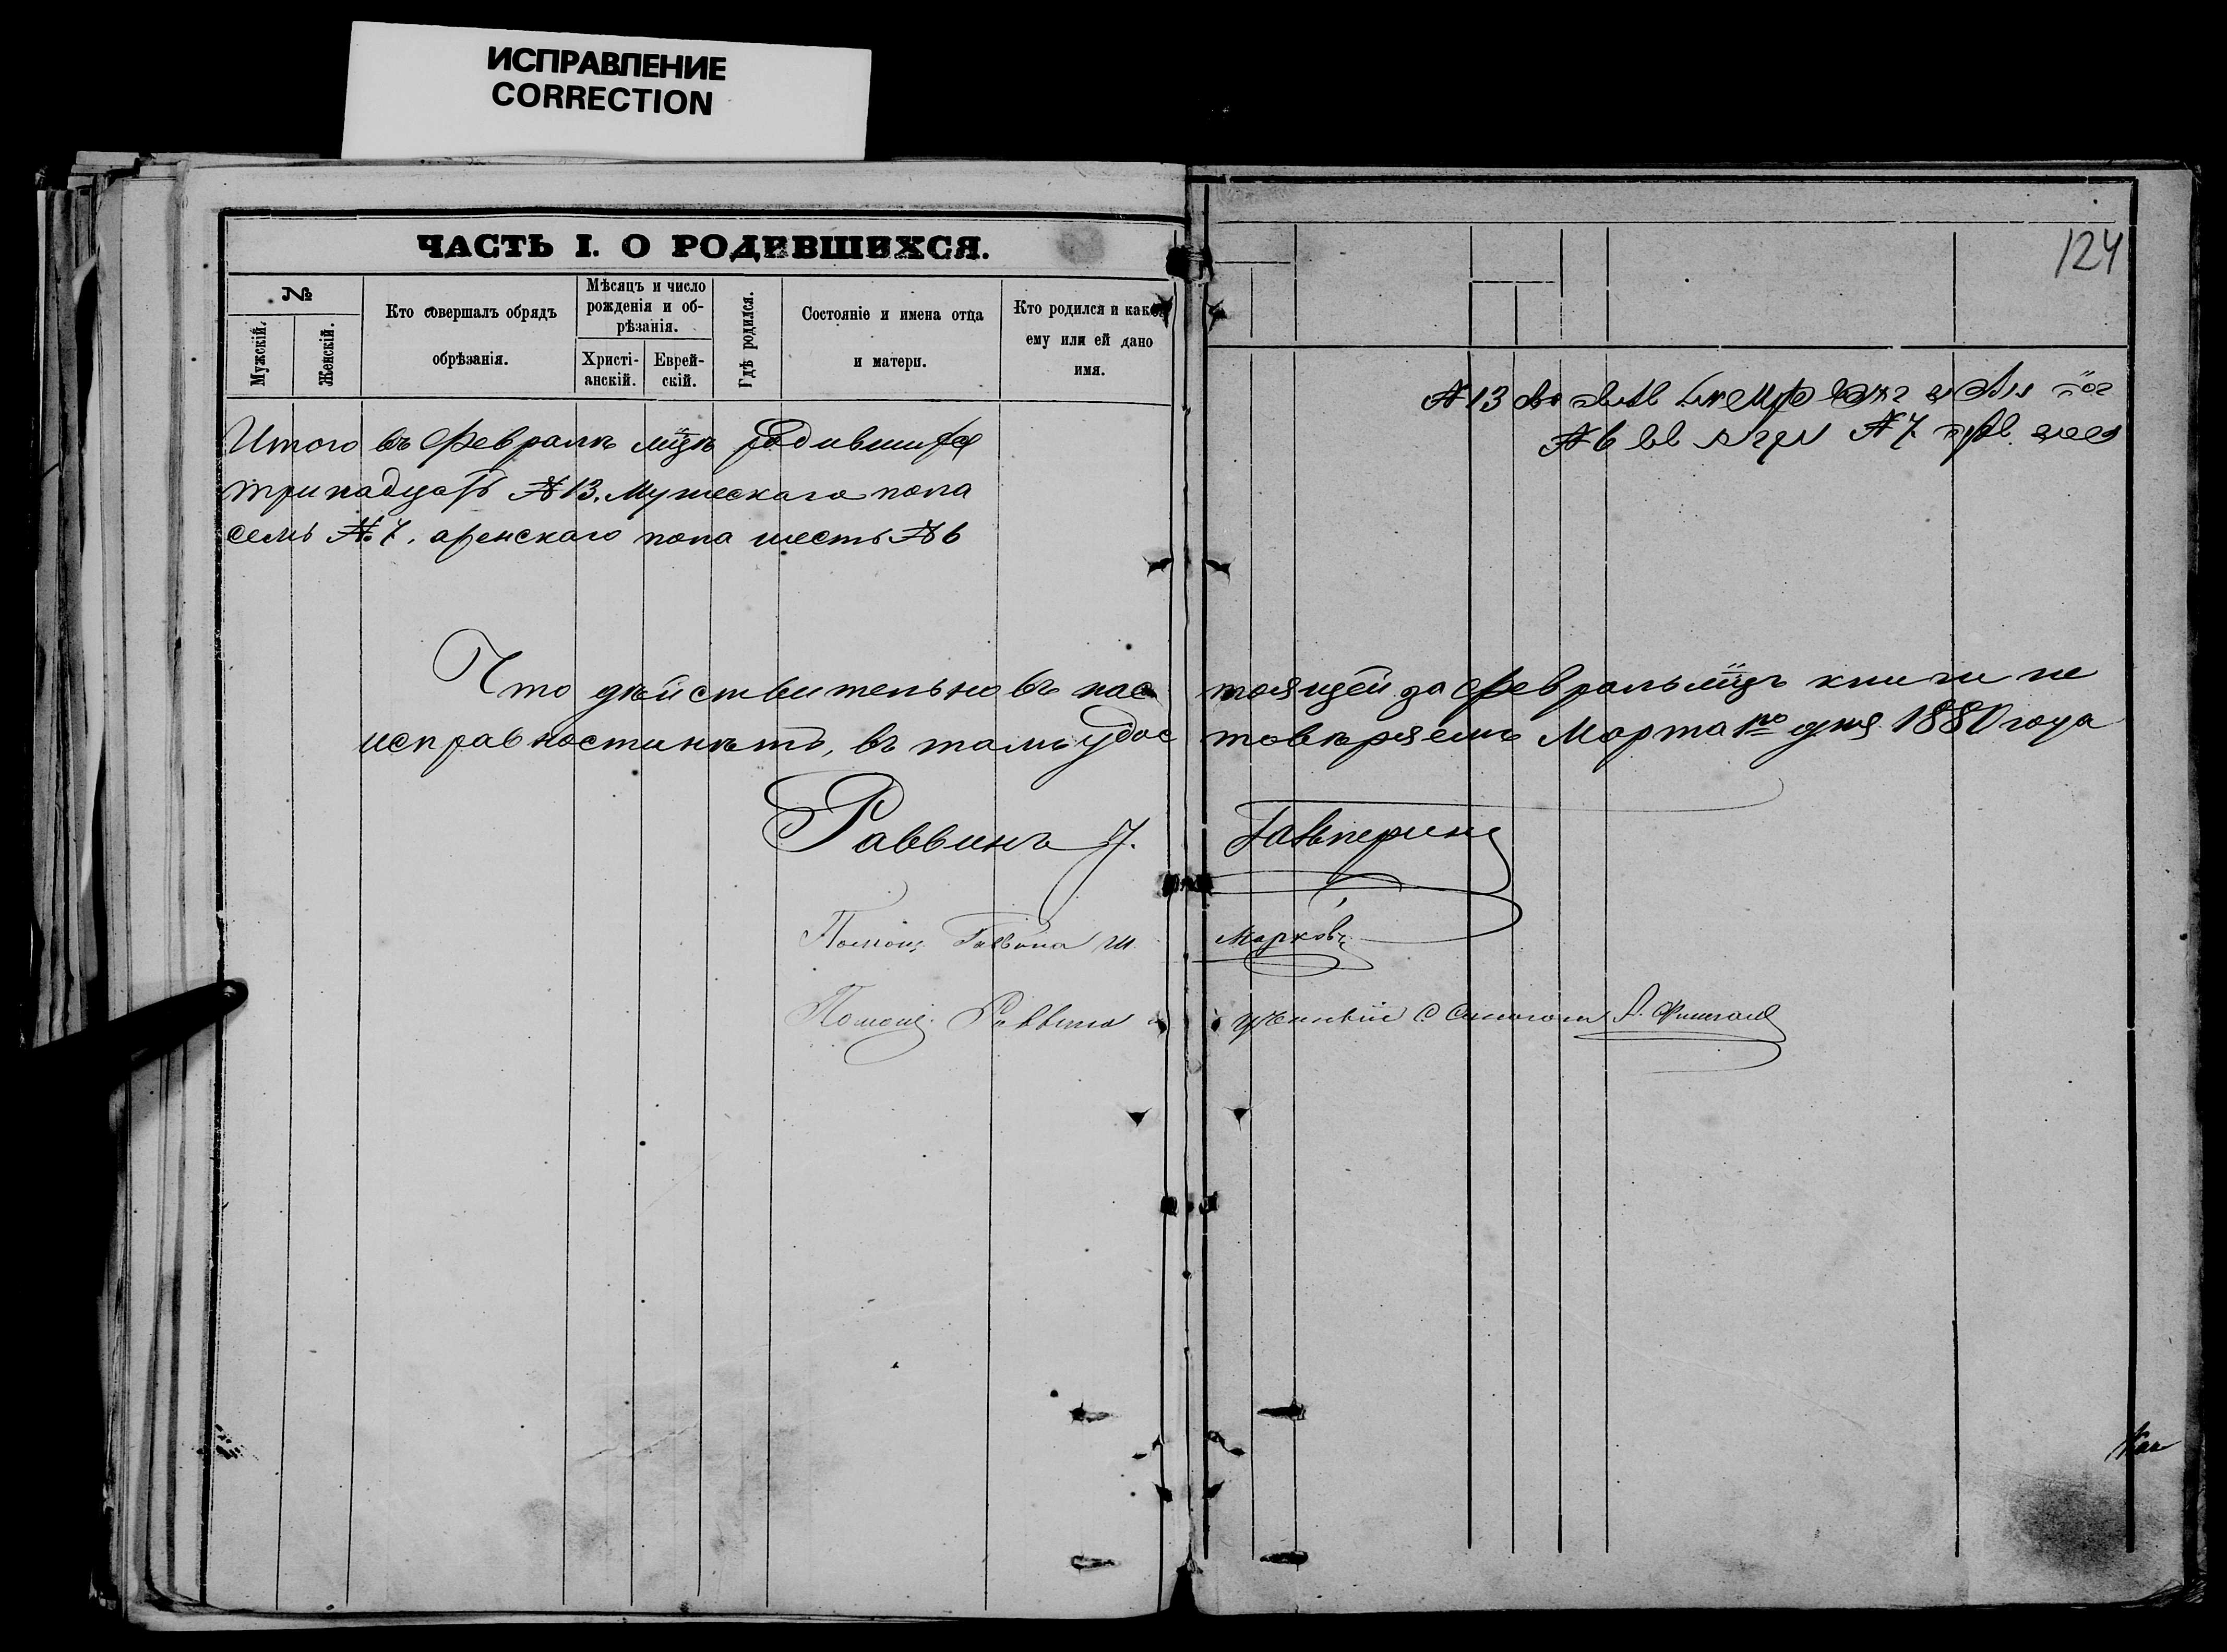 ИСПРАВЛЕНИЕ
CORRECTION
ЧАСТЬ I. О РОДИВШИХСЯ.
№
Мужскій.
Женскій.
Кто совершалъ обрядъ
обрѣзанія.
Мѣсяцъ и число
рожденія и об-
рѣзанія.
Христі-
анскій.
Еврей-
скій.
Гдѣ родился.
Состояніе и имена отца
и матери.
Кто родился и какое
ему или ей дано
имя.
124
Итого въ Февралѣ мцѣ родившихся
тринадцать №13. Мужескаго пола
семь №7. женскаго пола шесть №6
№13
№6 №7
Что дѣйствительно въ настоящей за Февраль мцъ книги не
исправности нѣтъ, въ томъ удостовѣряемъ Марта 1го дня 1880 года
Раввинъ Я. Гальперинъ
Помощ. Раввина Ш. Марковъ
Помощ. Раввина ученый